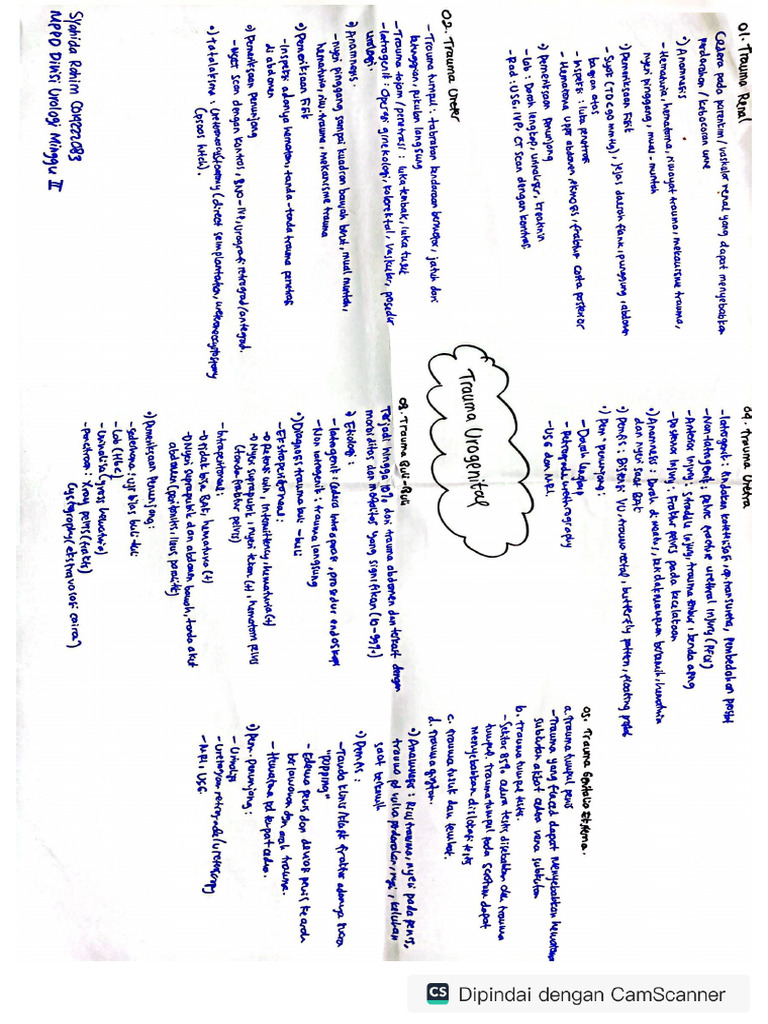 01. Trauma Renal
Cedera pada parenkim/vaskular renal yang dapat menyebabkan
perdarahan / kebocoran urine
•) Anamnesis
- Hematuria, hematoma, riwayat trauma, mekanisme trauma,
nyeri pinggang, mual-muntah
•) Pemeriksaan Fisik
- Syok (TD < 90 mmHg), jejas daerah flank, punggung, abdomen
bagian atas
- Inspeksi: luka penetrasi
- Hematoma upper abdomen, fraktur costa posterior
•) Pemeriksaan penunjang
- Lab: Darah lengkap, urinalisis, kreatinin
- Rad: USG, IVP, CT scan dengan kontras
02. Trauma Ureter
- Trauma tumpul: tabrakan kendaraan bermotor, jatuh dari
ketinggian, pukulan langsung
- Trauma tajam/penetrasi: luka tembak, luka tusuk
- Iatrogenik: Operasi ginekologi, kolorektal, vaskular, prosedur
urologi
•) Anamnesis:
- nyeri pinggang sampai kuadran bawah, mual muntah,
hematuria, riw. trauma, mekanisme trauma
•) Pemeriksaan Fisik
- Inspeksi adanya hematom, tanda-tanda trauma penetrasi
di abdomen
•) Pemeriksaan penunjang
- USG, scan dengan kontras, BNO-IVP, urografi retrograd/antegrad.
•) Tatalaksana: ureteroneocystostomy (direct reimplantation, ureteroneocystostomy
(psoas hitch).
Syahida Rahim C014222083
MPPD Divisi Urologi Minggu II
Trauma Urogenital
03. Trauma Buli-Buli
Terjadi hingga 10% dari trauma abdomen dan terkait dengan
morbiditas dan mortalitas yang signifikan (10-22%)
•) Etiologi:
- Iatrogenik: Cedera intraoperasi, prosedur endoskopi
- Non iatrogenik: trauma langsung
•) Diagnosis trauma buli-buli
- Ekstraperitoneal:
○ Retensi urin, intermittency, hematuria (+)
○ Nyeri suprapubik, nyeri tekan (+), hematom pelvis
(tanda fraktur pelvis)
- Intraperitoneal:
○ Tidak bisa BAK, hematuria (+)
○ Nyeri suprapubik dan abdomen bawah, tanda akut
abdomen (peritonitis, ileus paralitik)
•) Pemeriksaan Penunjang:
Sederhana: uji bilas buli-buli
- Lab (Hb)
- Urinalisis (gross hematuria)
- Pencitraan: X-ray pelvis (fraktur)
Cystography (ekstravasasi cairan)
04. Trauma Uretra
- Iatrogenik: tindakan kateterisasi, op. transuretra, pembedahan prostat
- Non-Iatrogenik: pelvic fracture urethral injury (PFUI)
- Anterior Injury: straddle injury, trauma tembus, benda asing
- Posterior Injury: Fraktur pelvis pada kecelakaan
•) Anamnesis: Darah di meatus, ketidakmampuan berkemih, hematuria
dan nyeri saat BAK
•) Pemfis: Distensi VU, trauma rectal, butterfly pattern, floating prostat
•) Pem. penunjang:
- Darah lengkap
- Retrograde urethrography
- USG dan MRI.
05. Trauma Genitalia Eksterna.
a. Trauma tumpul penis
- Trauma yang flaccid dapat menyebabkan hematoma
subkutan akibat cedera vena subkutan
b. trauma tumpul testis.
- Sekitar 85% cedera testis disebabkan oleh trauma
tumpul. Trauma tumpul pada skrotum dapat
menyebabkan dislokasi testis
c. trauma tusuk dan tembak.
d. trauma gigitan.
•) Anamnesis: Riw. trauma, nyeri pada penis,
trauma pd vulva perdarahan, nyeri, keluhan
saat berkemih
•) Pemfis:
- Tanda klinis klasik fraktur adanya suara
"popping"
- Edema penis dan deviasi penis ke arah
berlawanan dgn arah trauma.
- Hematoma pd tempat cedera.
•) Pem. penunjang:
- Urinalisis
- Uretrogram retrograde/uretroscopy
- MRI, USG.
CS Dipindai dengan CamScanner